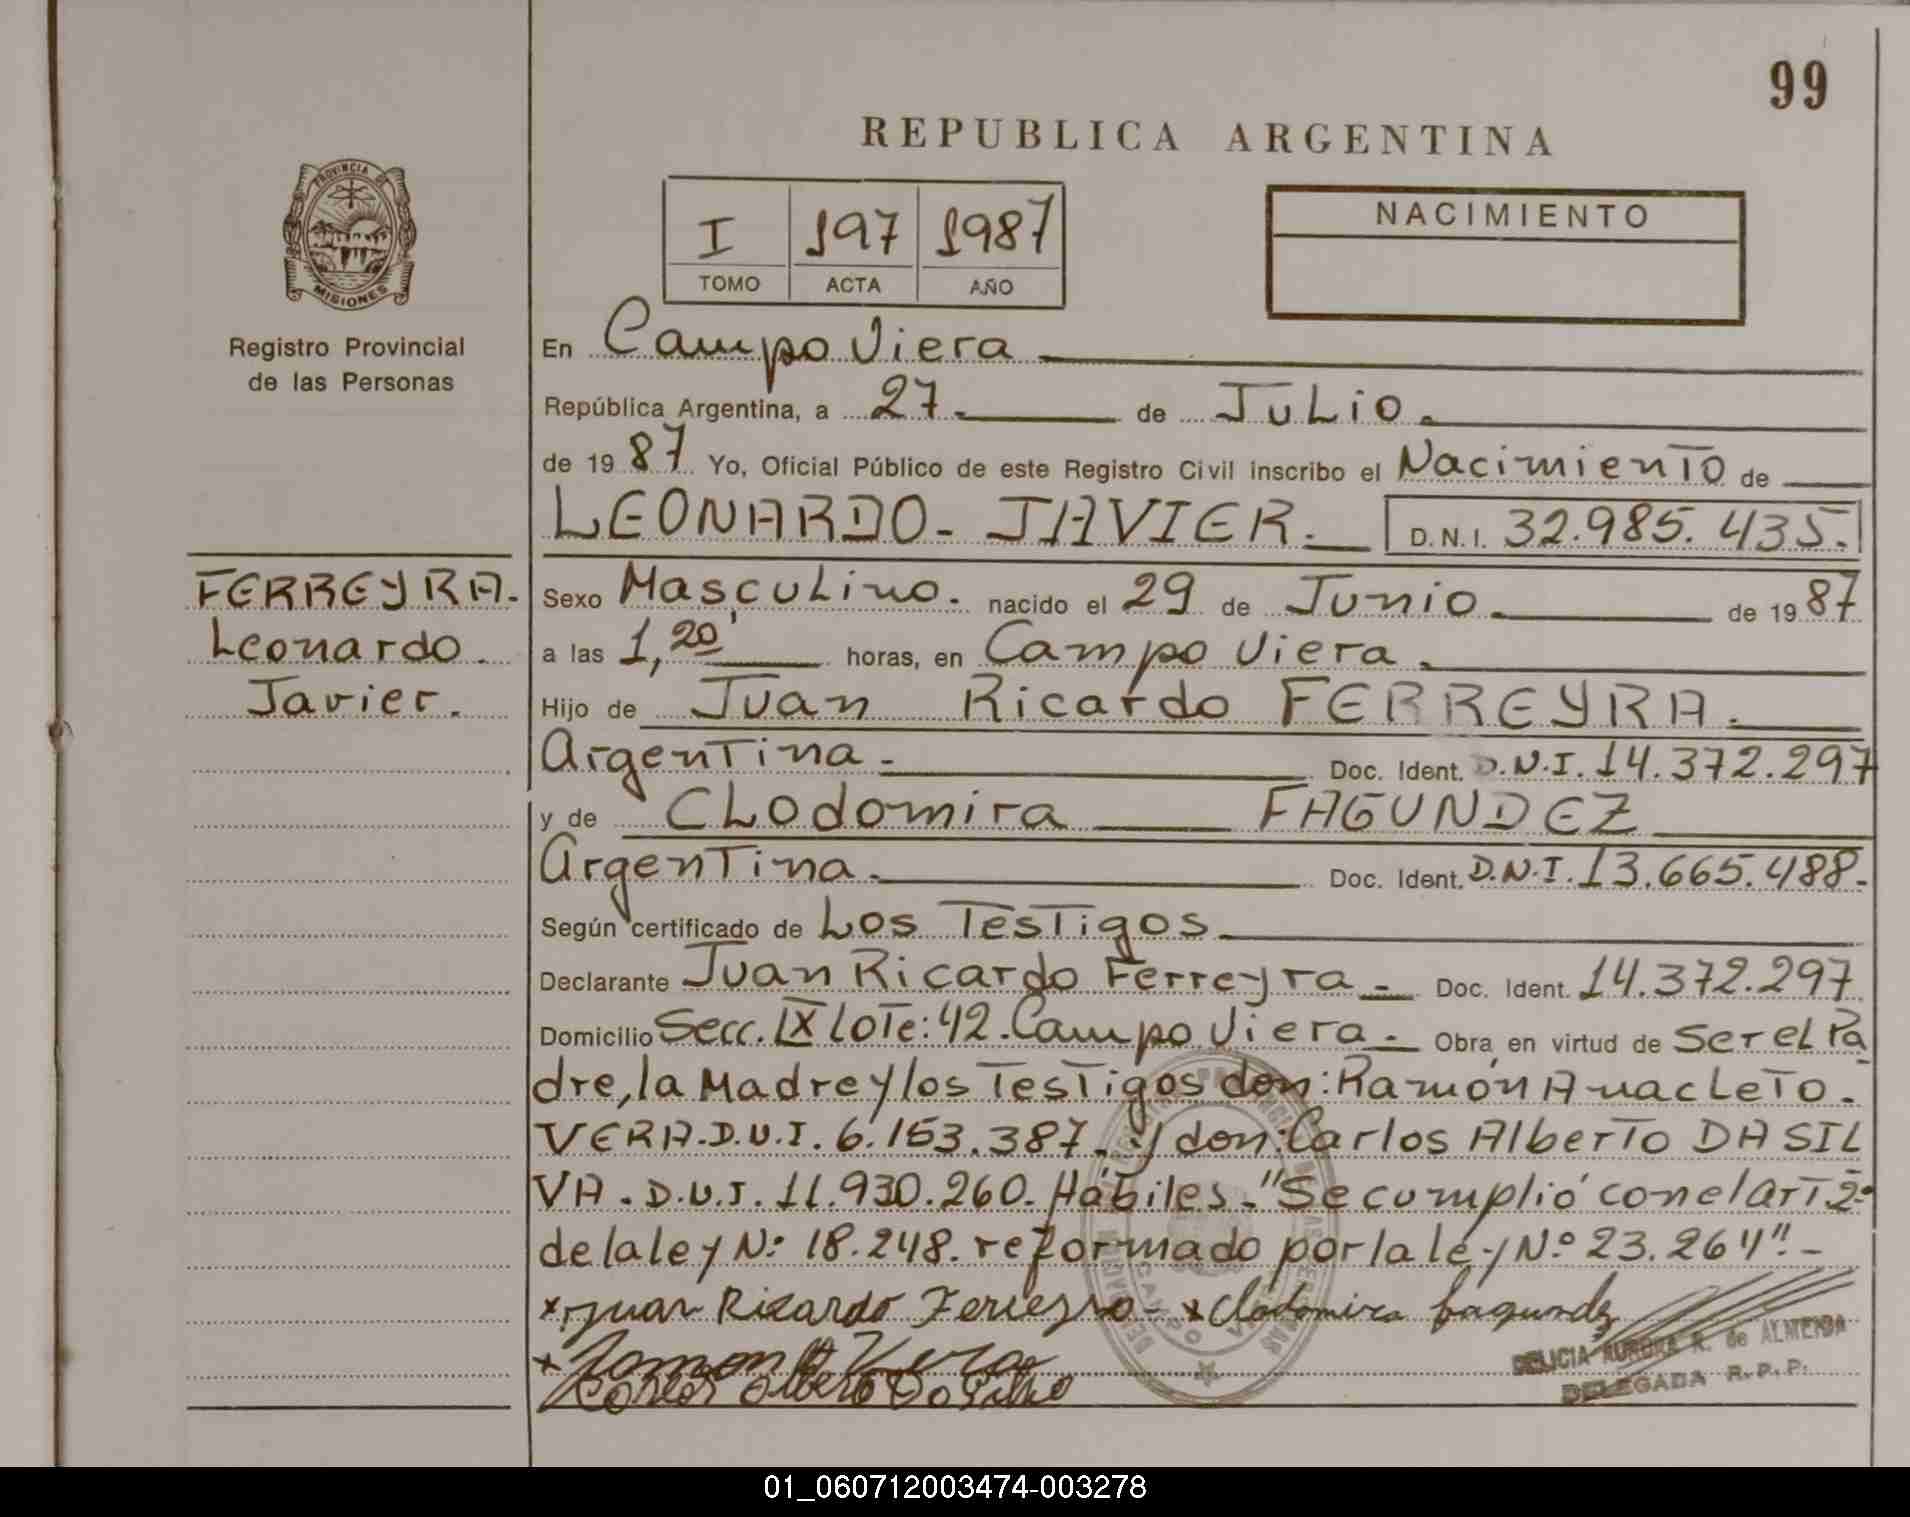 99
REPUBLICA ARGENTINA
PROVINCIA DE
MISIONES
Registro Provincial
de las Personas
I 197 1987
TOMO ACTA AÑO
NACIMIENTO
En Campo Viera
República Argentina, a 27 de Julio.
de 19 87 Yo, Oficial Público de este Registro Civil inscribo el Nacimiento de
LEONARDO - JAVIER. D.N.I. 32.985.435.
FERREYRA.
Leonardo.
Javier.
Sexo Masculino. nacido el 29 de Junio. de 19 87
a las 1,20' horas, en Campo Viera.
Hijo de Juan Ricardo FERREYRA.
Argentina. Doc. Ident. D.N.I. 14.372.297
y de Clodomira FAGUNDEZ
Argentina. Doc. Ident. D.N.I. 13.665.488.
Según certificado de Los Testigos
Declarante Juan Ricardo Ferreyra. Doc. Ident. 14.372.297
Domicilio Secc. IX Lote: 42. Campo Viera. Obra en virtud de Ser el Pa
dre, la Madre y los Testigos don: Ramón Anacleto.
VERA. D.N.I. 6.153.387. y don: Carlos Alberto DA SIL
VA. D.N.I. 11.930.260. Hábiles. "Se cumplió con el art 2º
de la ley N° 18.248. reformado por la ley N° 23.264".
x Juan Ricardo Ferreyra x Clodomira fagundez
x Ramon A Vera
Carlos Alberto Da Silva
DELICIA AURORA R. de ALMEIDA
DELEGADA R.P.P.
01_060712003474-003278